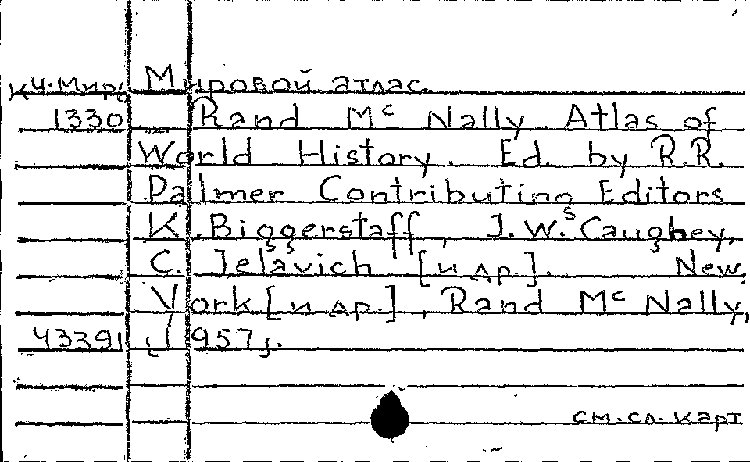 Кч.Миро Мировой атлас.
1330 Rand Mc Nally Atlas of
World History. Ed. by R.R.
Palmer Contributing Editors
K. Biggerstaff, J.W.S Caughey,
C. Jelavich [и др.]. New
York [и др.], Rand Mc Nally,
43291 [1957].
см. сл. карт